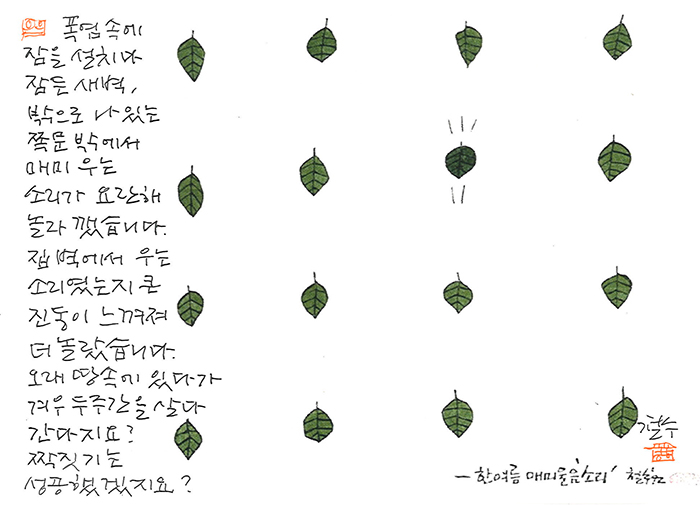 폭염 속에
잠을 설치다
잠든 새벽,
밖으로 나 있는
쪽문 밖에서
매미 우는
소리가 요란해
놀라 깼습니다.
집 벽에서 우는
소리였는지 큰
진동이 느껴져
더 놀랐습니다.
오래 땅속에 있다가
겨우 두 주간을 살다
간다지요?
짝짓기는
성공했겠지요?
철수
— 한여름 매미울음'소리'